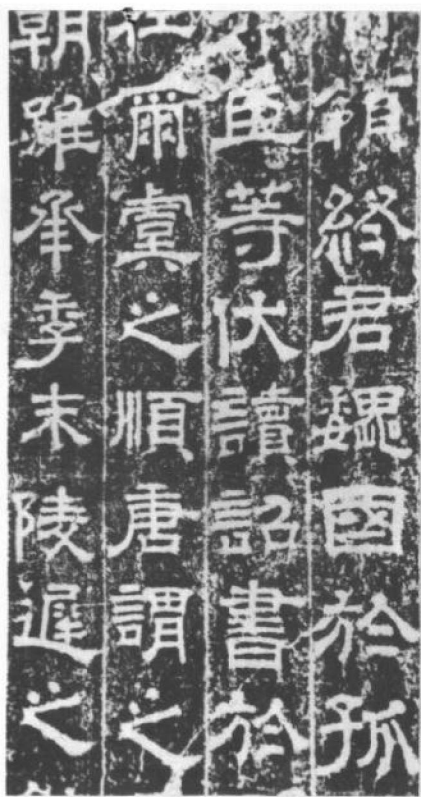 領終君魏國於孤
臣等伏讀詔書於
爾虞之順唐謂之
朝雖承季末陵遲之